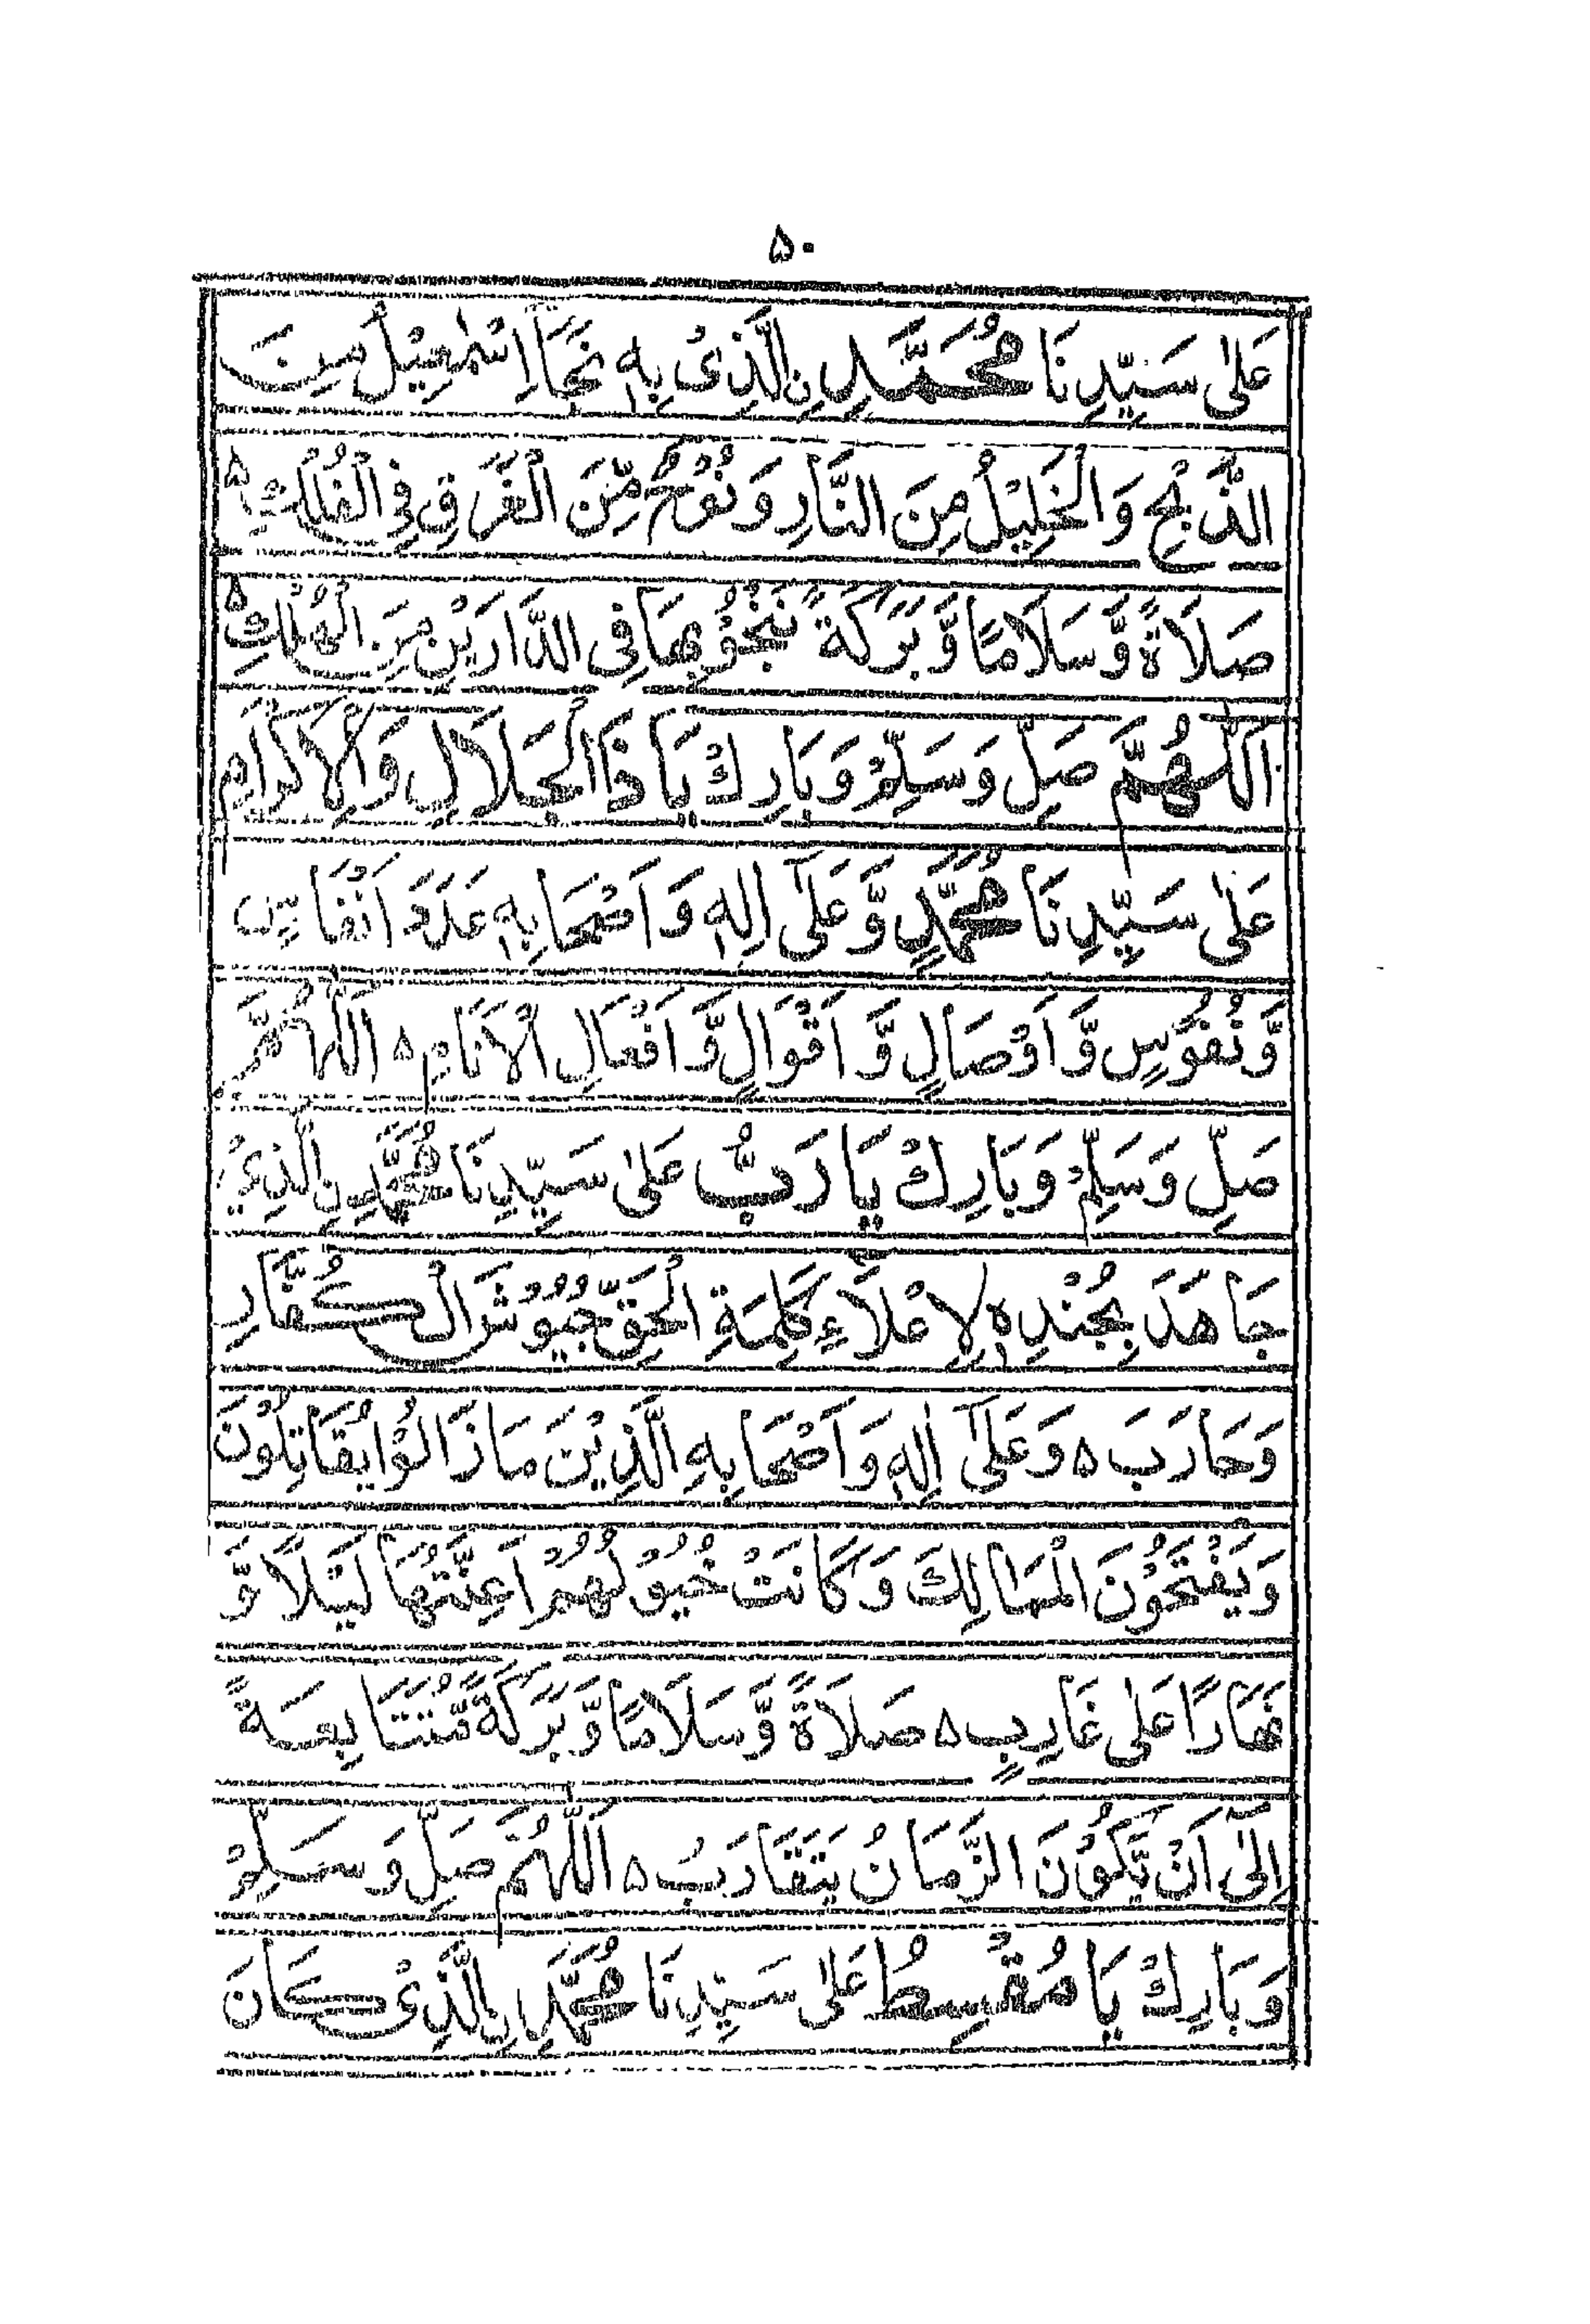 ۵۰
عَلٰى سَيِّدِنَا مُحَمَّدِنِ الَّذِىْ بِهٖ نَجَآ اِسْمٰعِيْلُ مِنَ
الذَّبْحِ وَالْخَلِيْلُ مِنَ النَّارِ وَنُوْحٌ مِّنَ الْغَرَقِ فِى الْفُلْكِ ۵
صَلَاةً وَّسَلَامًا وَّبَرَكَةً نَنْجُوْ بِهَا فِى الدَّارَيْنِ مِنَ الْهُلْكِ ۵
اَللّٰهُمَّ صَلِّ وَسَلِّمْ وَبَارِكْ يَا ذَا الْجَلَالِ وَالْاِكْرَامِ
عَلٰى سَيِّدِنَا مُحَمَّدٍ وَّعَلٰٓى اٰلِهٖ وَاَصْحَابِهٖ عَدَدَ اَنْفَاسٍ
وَّنُفُوْسٍ وَّاَوْصَالٍ وَّاَقْوَالٍ وَّاَفْعَالِ الْاَنَامِ ۵ اَللّٰهُمَّ
صَلِّ وَسَلِّمْ وَبَارِكْ يَا رَبُّ عَلٰى سَيِّدِنَا مُحَمَّدِنِ الَّذِىْ
جَاهَدَ بِجُنْدِهٖ لِاِعْلَاءِ كَلِمَةِ الْحَقِّ جُيُوْشَ الْكُفَّارِ
وَحَارَبَ ۵ وَعَلٰٓى اٰلِهٖ وَاَصْحَابِهِ الَّذِيْنَ مَا زَالُوْا يُقَاتِلُوْنَ
وَيَفْتَحُوْنَ الْمَمَالِكَ وَكَانَتْ خُيُوْلُهُمْ اَعِنَّتُهَا لَيْلًا وَّ
نَهَارًا عَلٰى غَارِبٍ ۵ صَلَاةً وَّسَلَامًا وَّبَرَكَةً مُّتَتَابِعَةً
اِلٰٓى اَنْ يَّكُوْنَ الزَّمَانُ يَتَقَارَبُ ۵ اَللّٰهُمَّ صَلِّ وَسَلِّمْ
وَبَارِكْ يَا مُقْسِطُ عَلٰى سَيِّدِنَا مُحَمَّدِنِ الَّذِىْ كَانَ